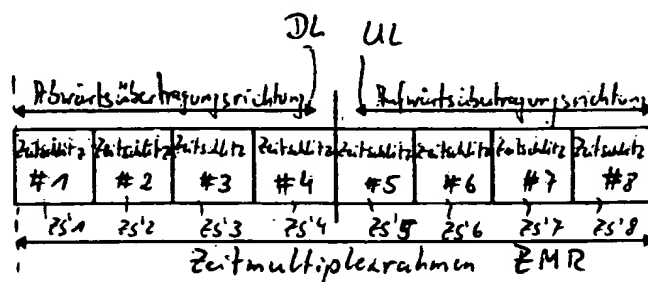 DL UL
Abwärtsübertragungsrichtung Aufwärtsübertragungsrichtung
Zeitschlitz Zeitschlitz Zeitschlitz Zeitschlitz Zeitschlitz Zeitschlitz Zeitschlitz Zeitschlitz
#1 #2 #3 #4 #5 #6 #7 #8
ZS'1 ZS'2 ZS'3 ZS'4 ZS'5 ZS'6 ZS'7 ZS'8
Zeitmultiplexrahmen ZMR